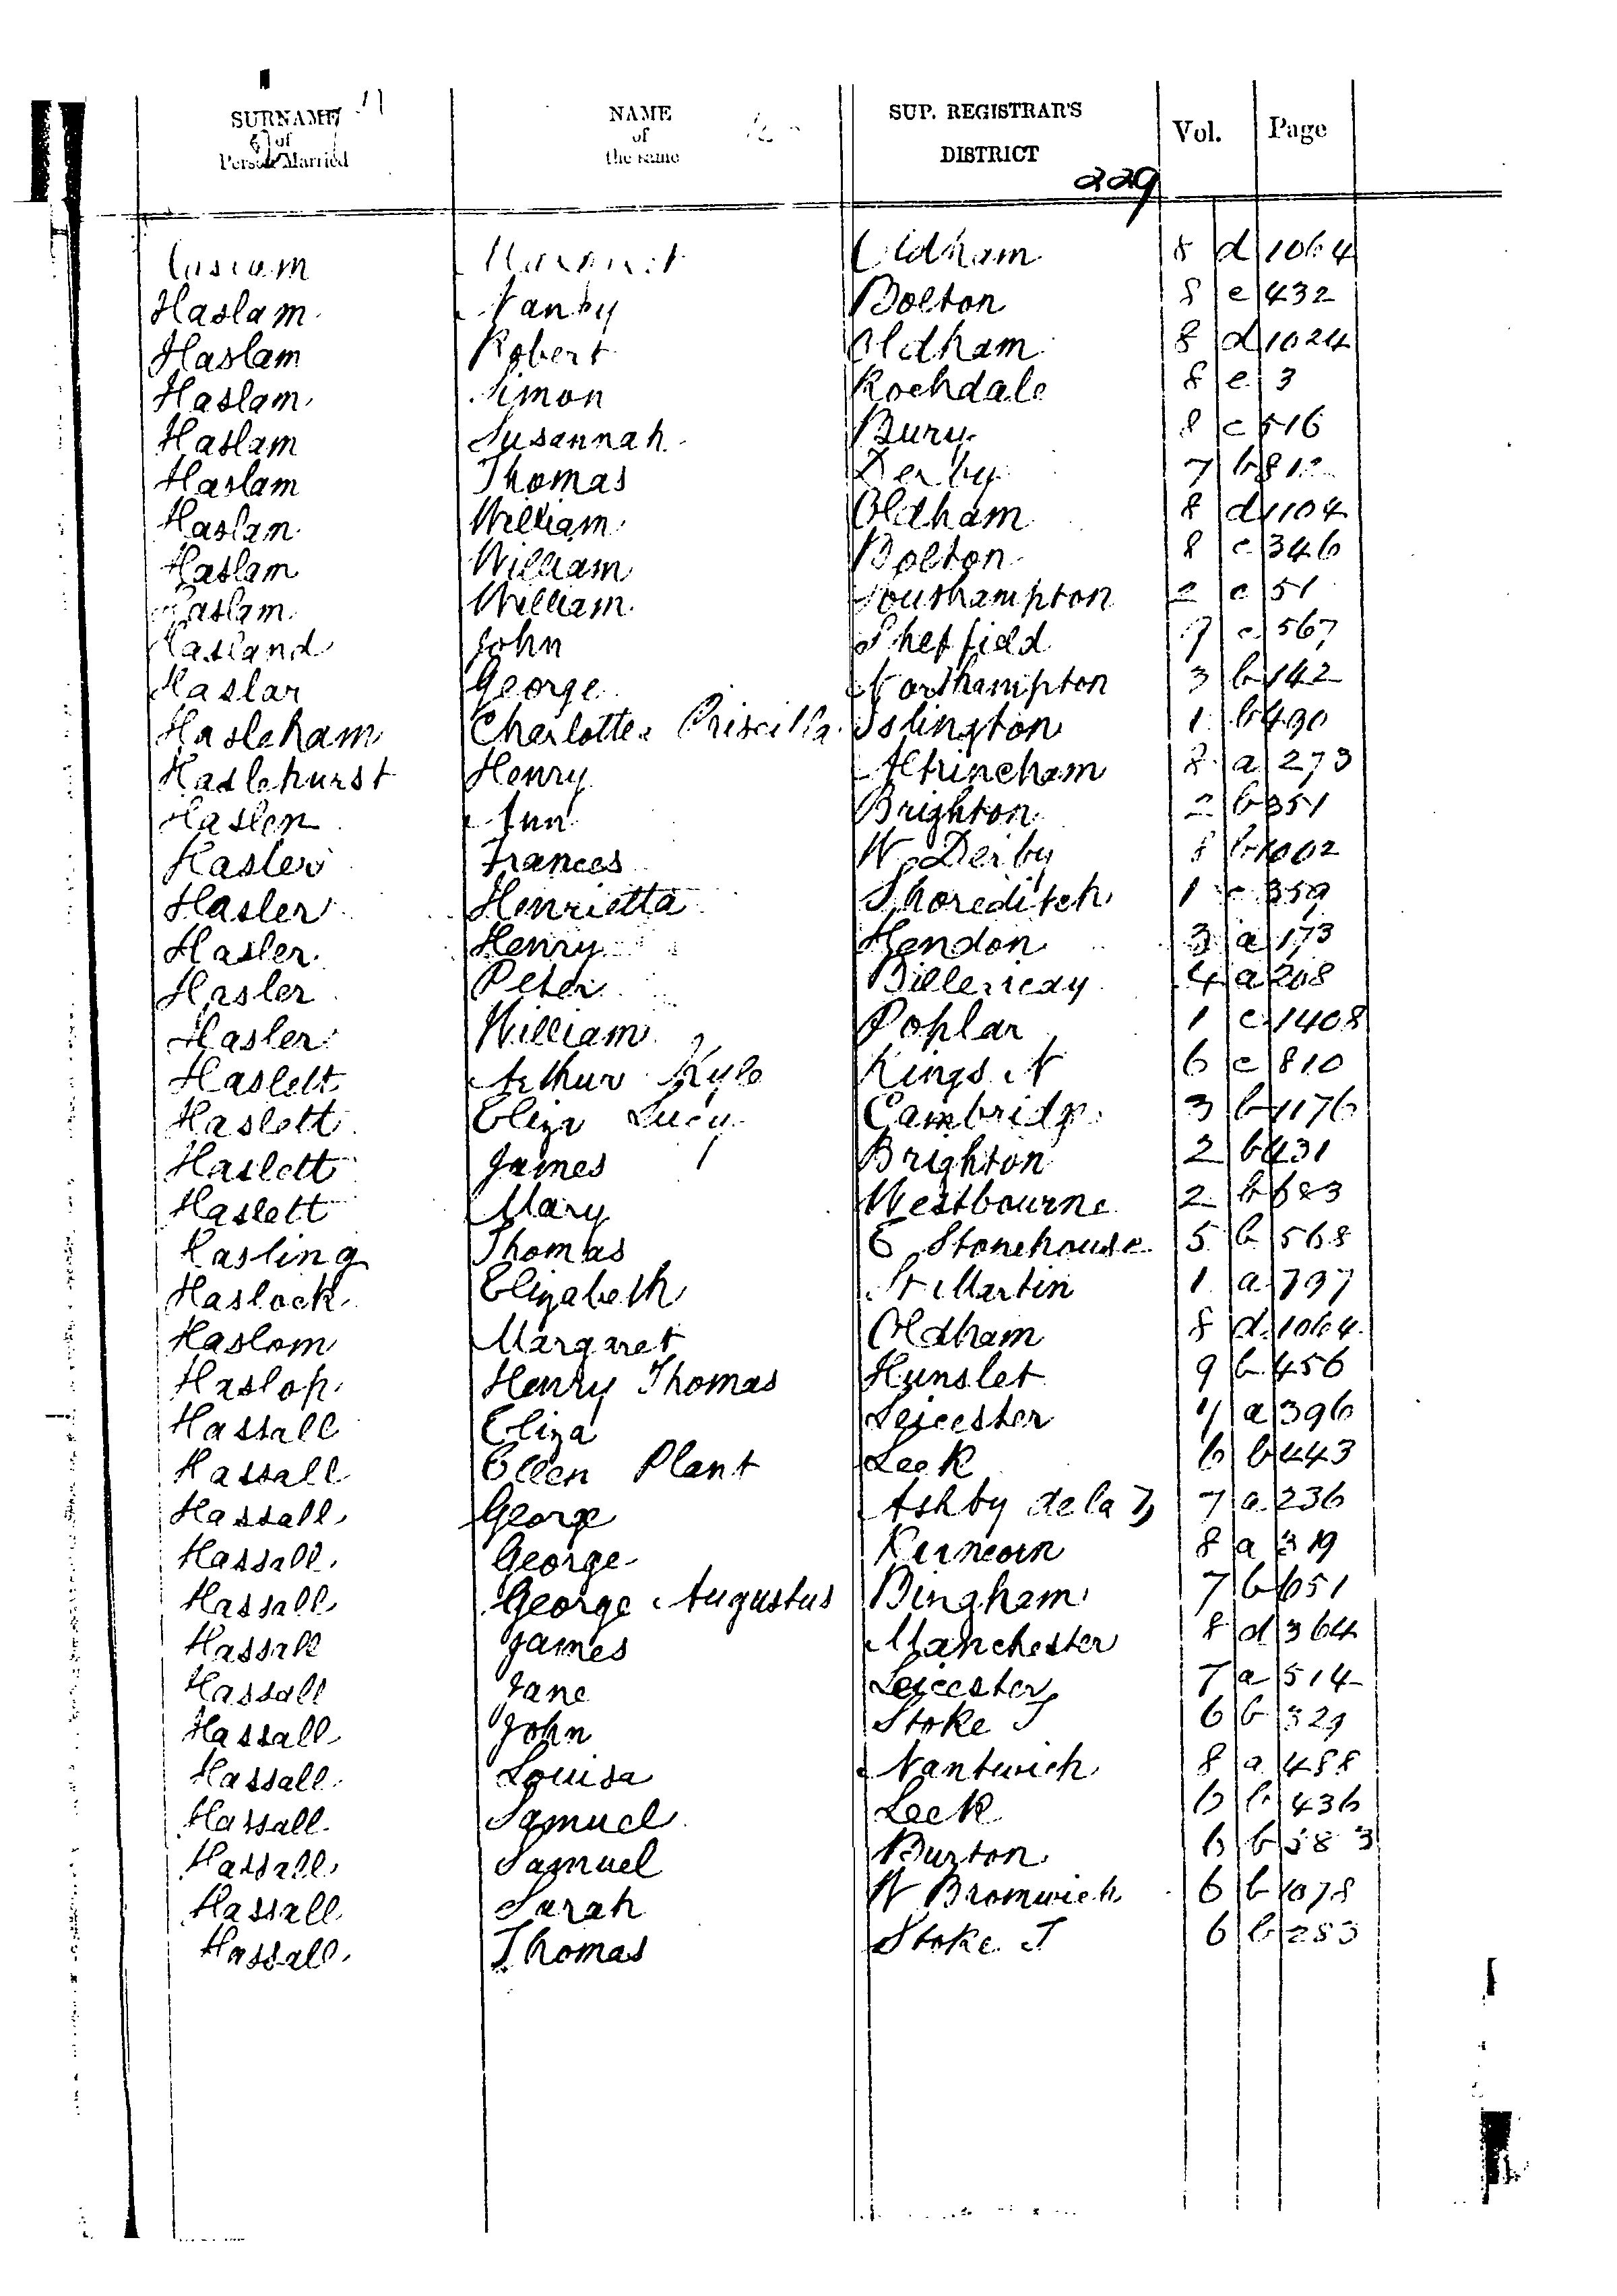 SURNAME of Person Married NAME of the same SUP. REGISTRAR'S DISTRICT Vol. Page
229
Oldham 8 d 1064
Haslam Nanby Bolton 8 c 432
Haslam Robert Oldham 8 d 1024
Haslam Simon Rochdale 8 e 3
Haslam Susannah Bury 8 c 516
Haslam Thomas Derby 7 b
Haslam William Oldham 8 d 1104
Haslam William Bolton 8 c 346
Haslam William Southampton 2 c 51
Hasland John Sheffield 9 c 567
Haslar George Northampton 3 b 142
Hasleham Charlotte Priscilla Islington 1 b 490
Haslehurst Henry Altrincham 8 a 273
Haslen Ann Brighton 2 b 351
Hasler Frances W. Derby 8 b 1002
Hasler Henrietta Shoreditch 1 c 359
Hasler Henry Hendon 3 a 173
Hasler Peter Billericay 4 a 208
Hasler William Poplar 1 c 1408
Haslett Arthur Kyle Kings N 6 c 810
Haslett Eliza Lucy Cambridge 3 b 1176
Haslett James Brighton 2 b 431
Haslett Mary Westbourne 2 b 683
Hasling Thomas E Stonehouse 5 b 568
Haslock Elizabeth St Martin 1 a 797
Haslom Margaret Oldham 8 d 1064
Haslop Henry Thomas Hunslet 9 b 456
Hassall Eliza Leicester 7 a 396
Hassall Ellen Plant Leek 6 b 443
Hassall George Ashby de la Z 7 a 236
Hassall George Runcorn 8 a 319
Hassall George Augustus Bingham 7 b 651
Hassall James Manchester 8 d 364
Hassall Jane Leicester 7 a 514
Hassall John Stoke T 6 b 329
Hassall Louisa Nantwich 8 a 488
Hassall Samuel Leek 6 b 436
Hassall Samuel Burton 6 b 583
Hassall Sarah W Bromwich 6 b 1078
Hassall Thomas Stoke T 6 b 283